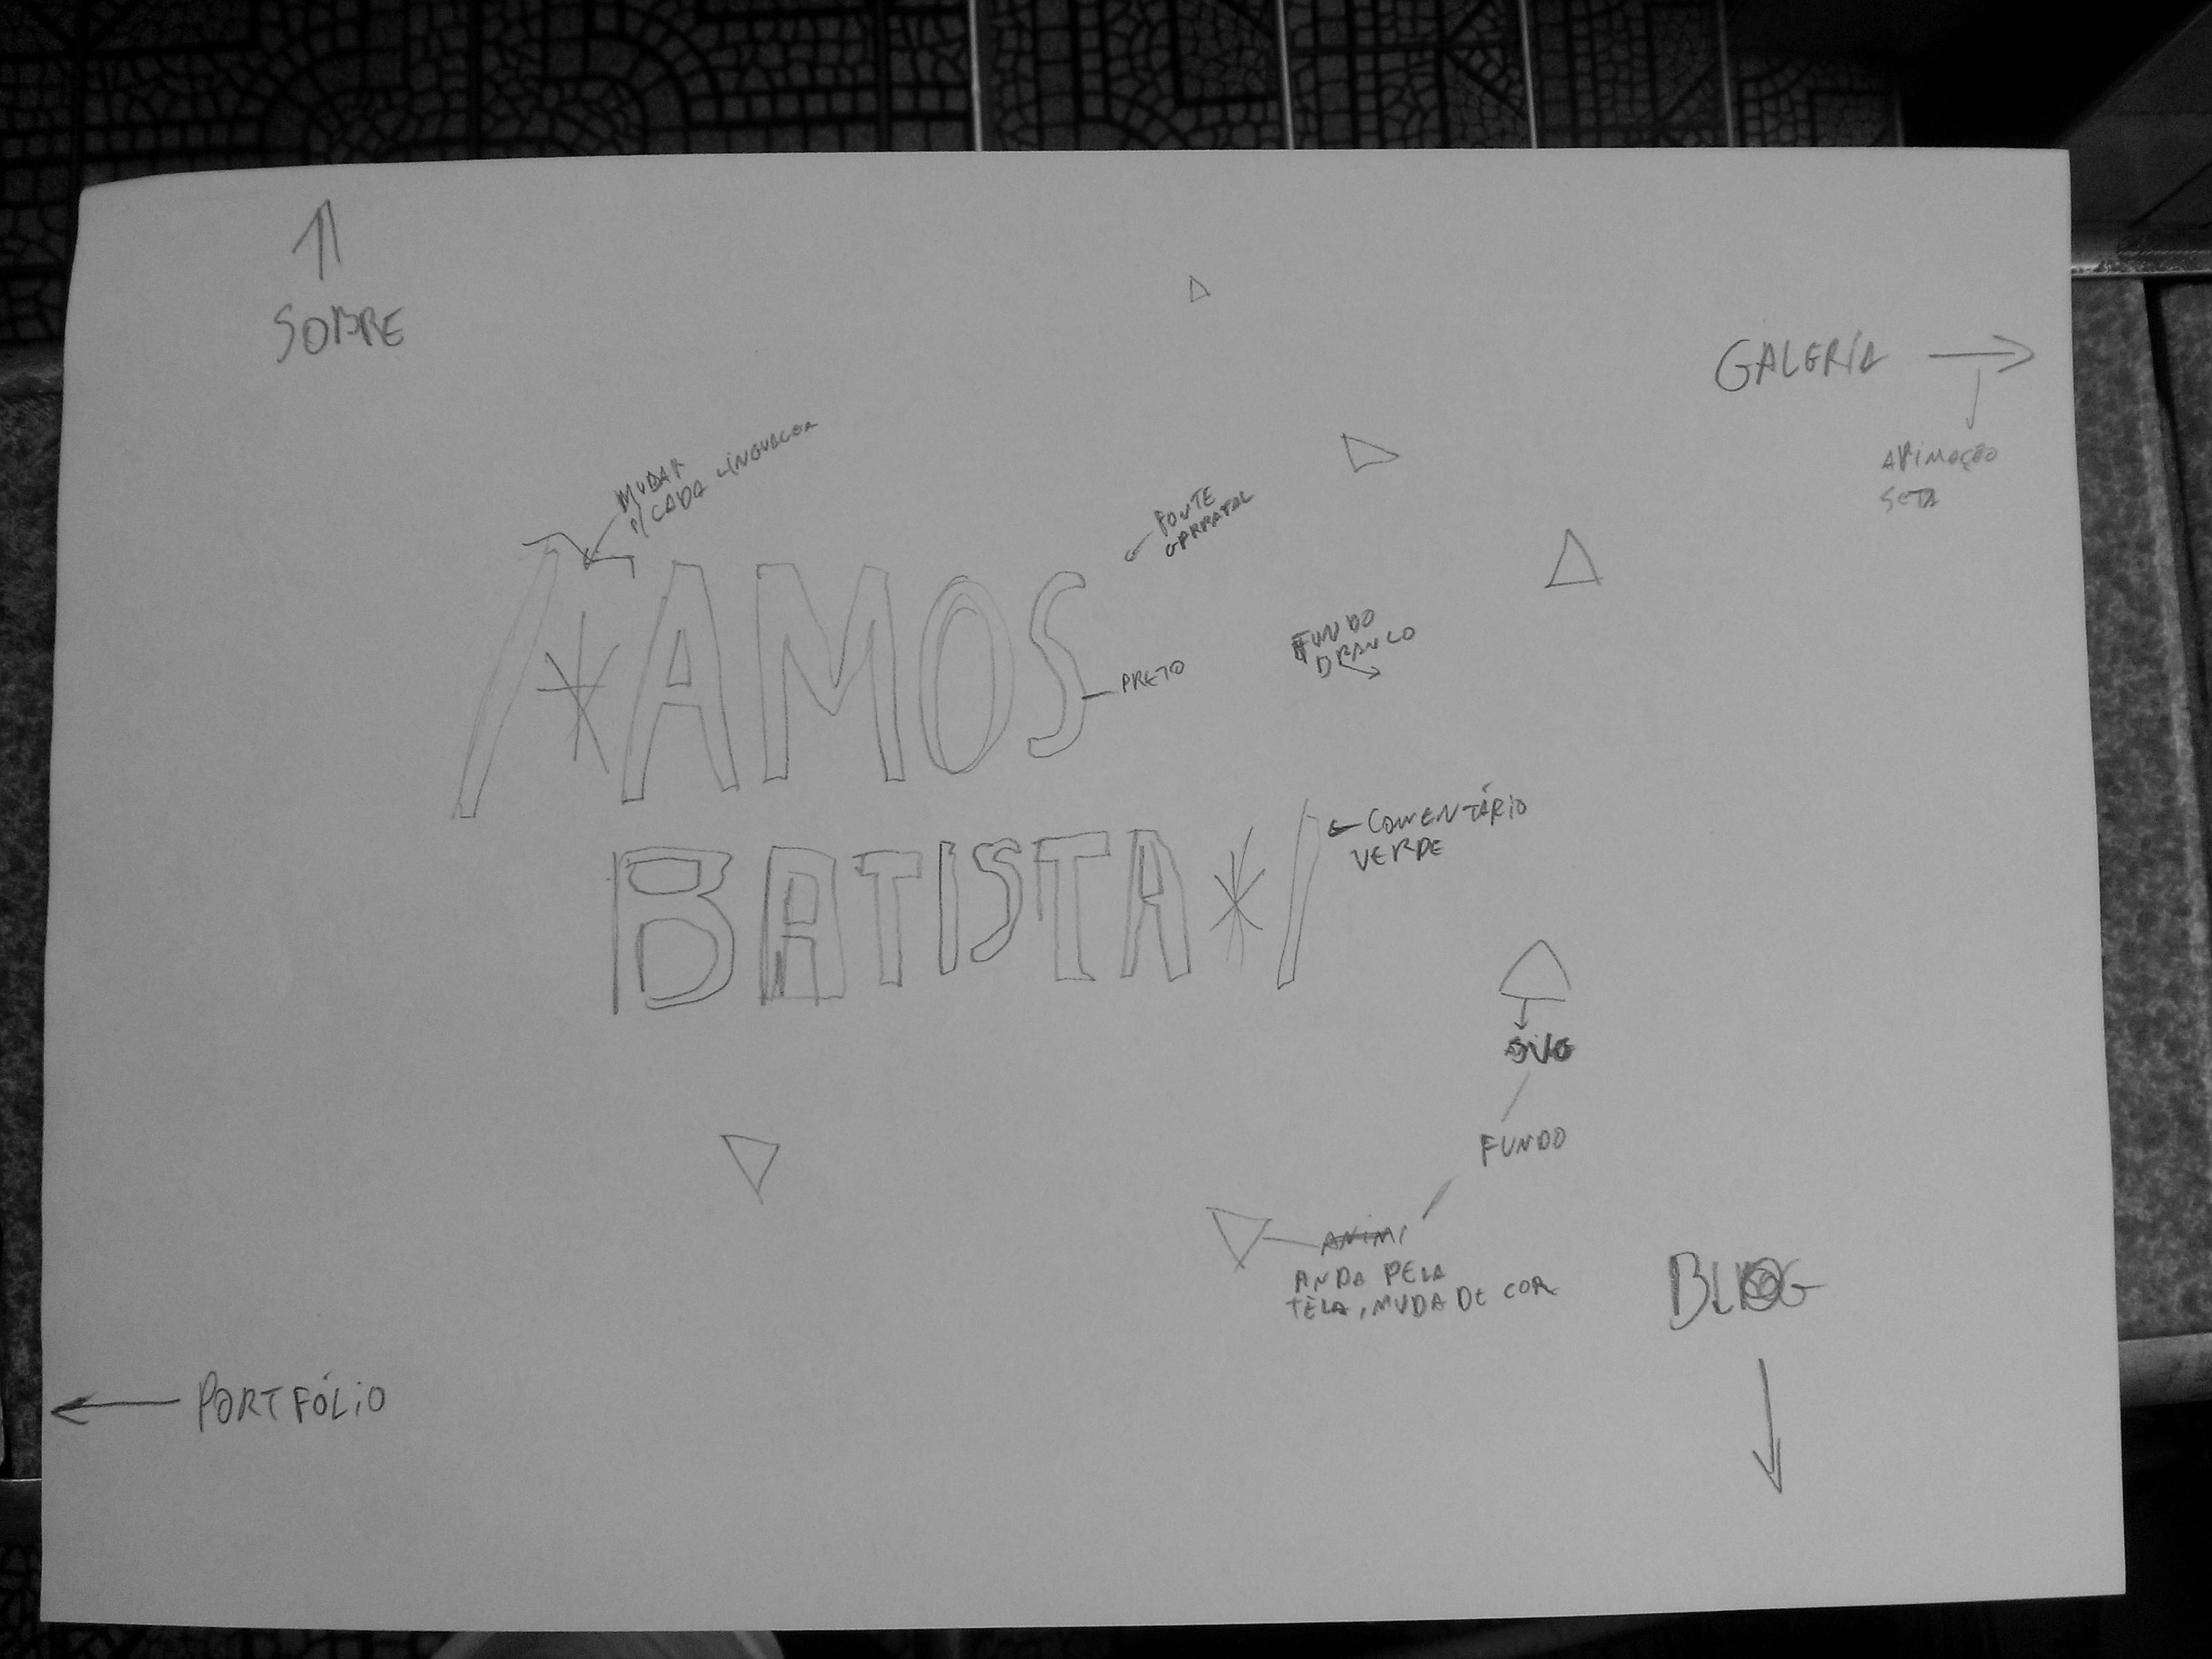 SOBRE
GALERIA
ANIMAÇÃO
SETA
MUDAR
P/ CADA LINGUAGEM
FONTE
GARRAFAL
/*AMOS
PRETO
FUNDO
BRANCO
BATISTA*/
COMENTÁRIO
VERDE
SVG
FUNDO
ANIMI
ANDA PELA
TELA, MUDA DE COR
BLOG
PORTFÓLIO